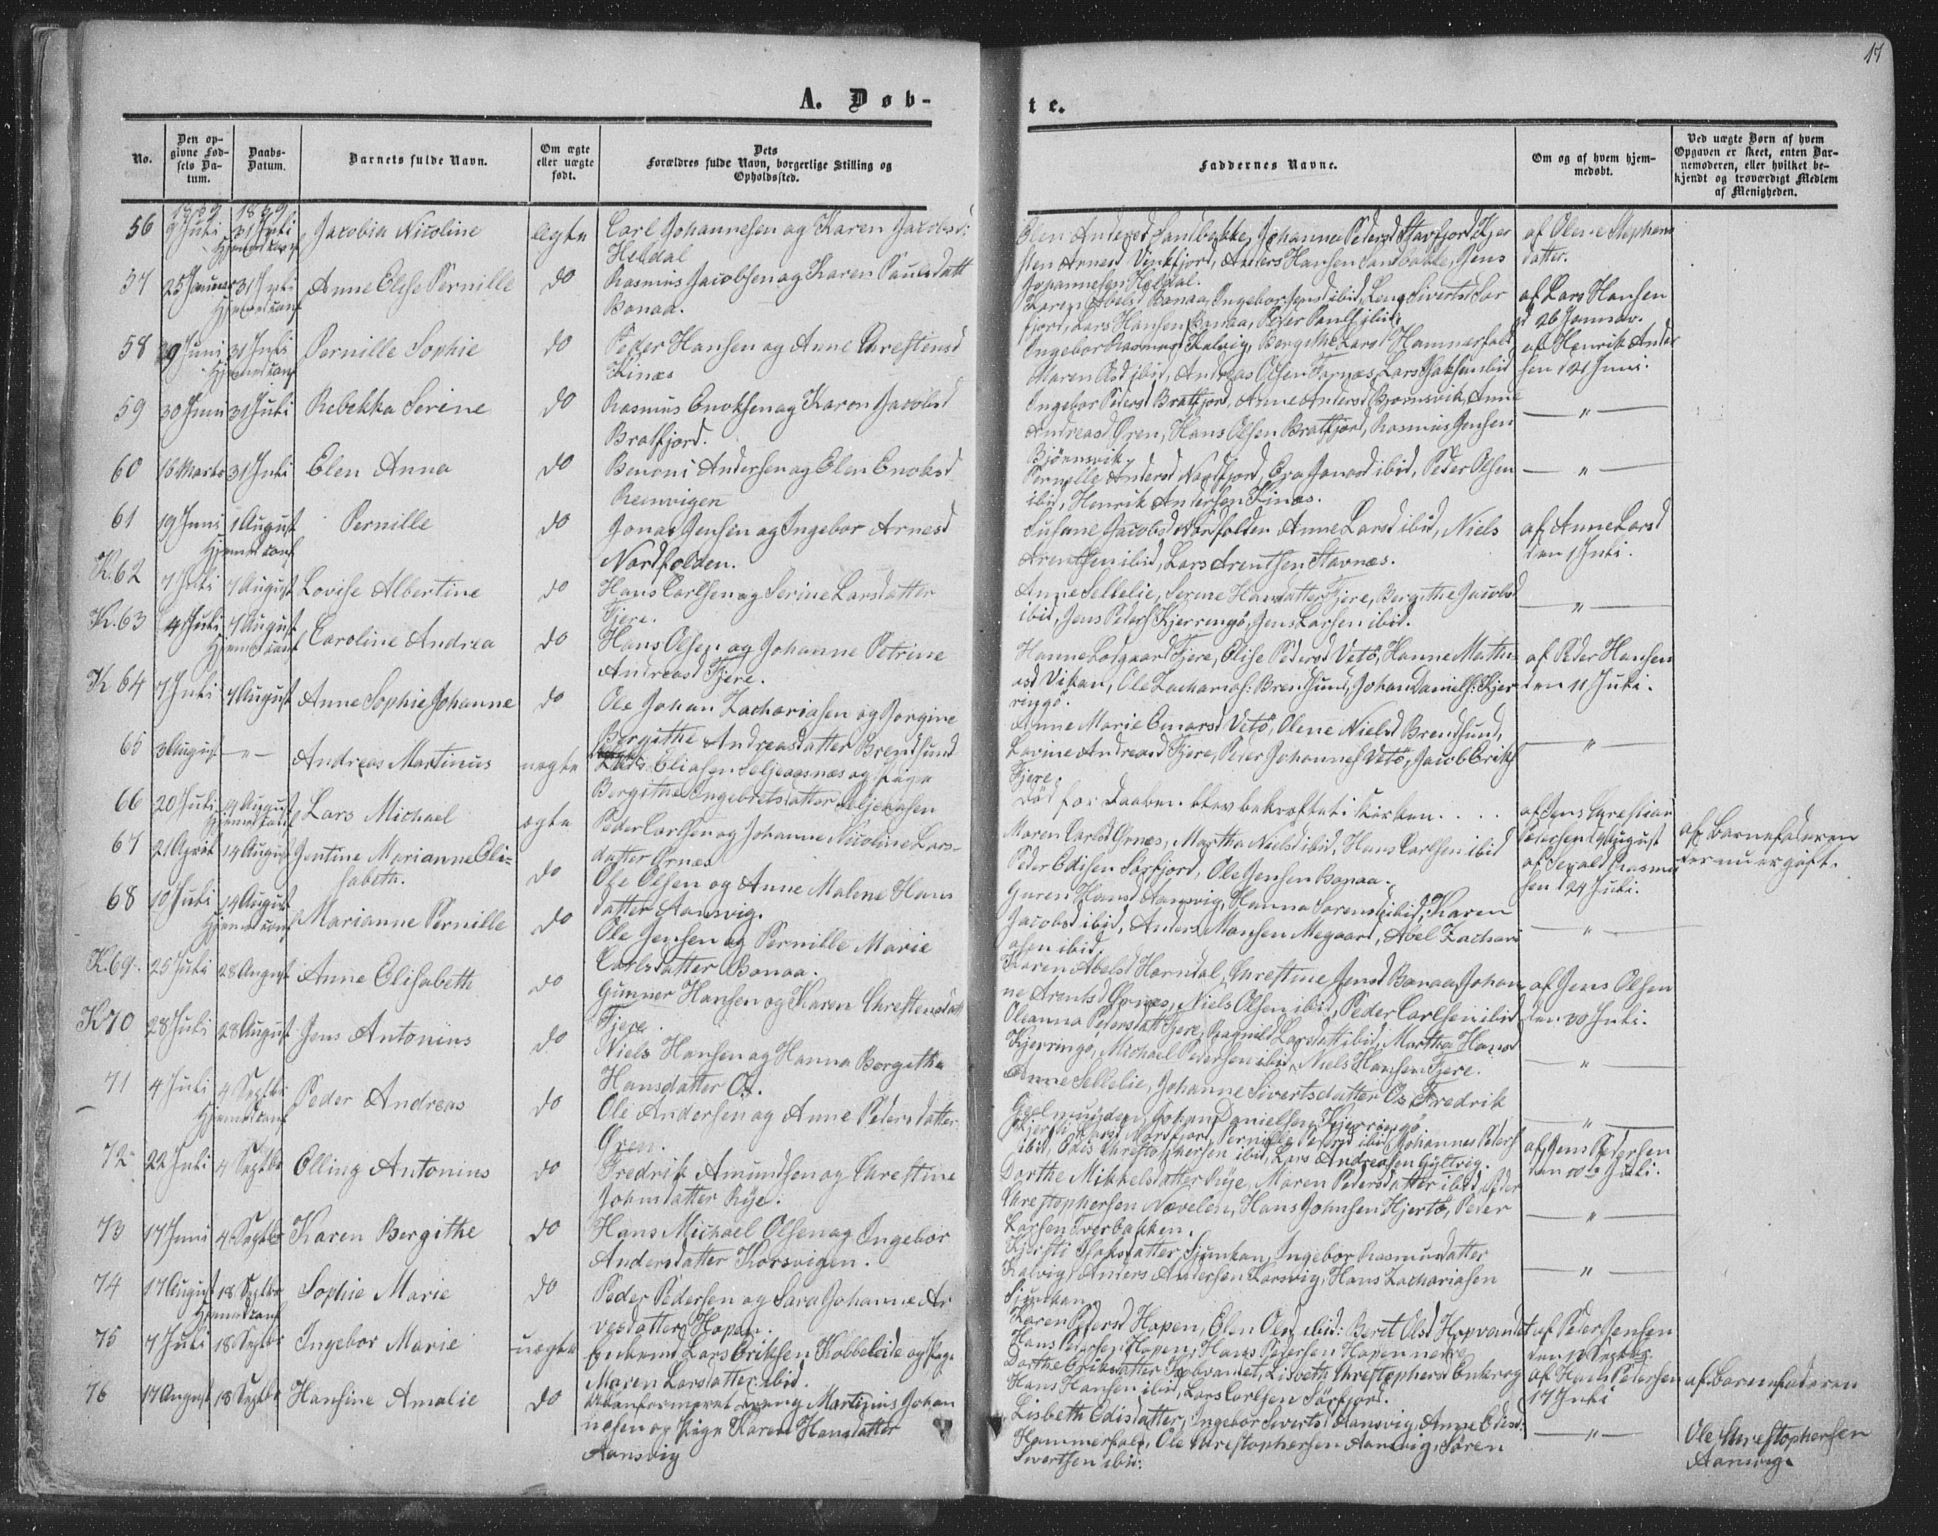 17
A. Døb-
te.
No.
Den op-
givne Fød-
sels Da-
tum.
Daabs-
Datum.
Barnets fulde Navn.
Om ægte
eller uægte
født.
Dets
Forældres fulde Navn, borgerlige Stilling og
Opholdssted.
Faddernes Navne.
Om og af hvem hjem-
medøbt.
Ved uægte Børn af hvem
Opgaven er skeet, enten Bar-
nemoderen, eller hvilket be-
kjendt og troværdigt Medlem
af Menigheden.
1859 1859
56 9 Juli 31 Juli Jacobia Nicoline ægte Carl Johannesen og Karen Jacobsd:
Heldal
Elen Andersd Sandbakke, Johanna Pedersd Stavfjord, Kjer
sten Arnesd Vinkfjord, Anders Hansen Sandbakke, Jens
Johannesen Heldal.
af Olene Stephens
datter.
57 25 Januar 31 Juli Anne Elise Pernille do Rasmus Jacobsen og Karen Paulsdatt
Bonaa.
Karen Abelsd Bonaa, Ingebor Jensd ibid, Lena Sivertsd Sør
fjord, Lars Hansen Bonaa, Peter Paulsen ibid,
af Lars Hansen
d 26 Januar.
58 29 Juni 31 Juli Pernille Sophie do Peder Hansen og Anne Chrestensd
Finæs
Ingebor Rasmusd Kalvig, Bergithe Larsd Hammerfald
Maren Olsd ibid, Andreas Olsen Finnæs, Lars Isaksen ibid
af Henrik Ander
sen 121 Juni.
59 30 Juni 31 Juli Rebekka Serine do Rasmus Enoksen og Karen Jacobsd
Bratfjord.
Ingebor Pedersd Bratfjord, Anne Andersd Bjørnsvik, Anne
Andreasd Øren, Hans Olsen Bratfjord, Rasmus Jensen
Bjørnsvik
— " —
60 16 Marts 31 Juli Elen Anna do Benoni Andersen og Elen Enoksd
Reinvigen
Pernille Andersd Nordfjord, Eva Jonasd ibid, Peder Olsen
ibid, Henrik Andersen Finæs.
— " —
61 19 Juni 1 August Pernille do Jonas Jensen og Ingebor Arnesd
Nordfolden.
Susane Jacobsd Norfolden Anne Larsd ibid, Niels
Arentsen ibid, Lars Arentsen Stavnæs.
af Anne Larsd
den 1 Juli.
K.62 7 Juli 7 August Lovise Albertine do Hans Carlsen og Serine Larsdatter
Fjere.
Anne Selbelie, Serene Hansdatter Fjere, Bergithe Jacobsd
ibid, Jens Peders Kjerringø, Jens Larsen ibid.
— " —
K.63 4 Juli 7 August Caroline Andrea do Hans Olsen og Johanne Petrine
Andreasd Fjere.
Hanne Lodgaard Fjere, Elise Pedersd Vetø, Hanne Mathi
asd Vikan, Ole Zacharias: Brendsund, Johan Daniels: Kjer
ringø.
af Peder Hansen
den 11 Juli.
K 64 7 Juli 7 August Anne Sophie Johanne do Ole Johan Zachariasen og Jorgine
Bergithe Andreasdatter Brendsund
Anne Marie Enarsd Vetø, Olene Nielsd Brendsund,
Lovine Andreasd Fjere, Peder Johannes Vetø, Jacob Eriks
Fjere.
— " —
65 3 August — " — Andreas Martinus uægte Lads: Eliasen Seljeaasnæs og Pige
Bergithe Ingebretsdatter Seljeaasen
Død før Daaben blev bekræftet i Kirken . . . .
af Jens Christian
Pedersen 9 August
af Barnefaderen
der nu er gift.
66 20 Juli 14 August Lars Michael ægte Peder Carlsen og Johanne Nicoline Lars-
datter Ørnæs
Maren Carlsd Ørnæs, Martha Nielsd ibid, Hans Carlsen ibid
Peder Edisen Sørfjord, Ole Jensen Bonaa.
af Sevald Rasmus
sen 24 Juli.
67 21 April 14 August Jentine Marianne Eli-
sabeth.
do Ole Olsen og Anne Malene Hans
datter Aansvig.
Guren Hansd Aansvig, Hanna Sørensd ibid, Karen
Jacobsd ibid, Anders Monsen Megaard, Abel Zachari
asen ibid.
— " —
68 10 Juli 14 August Marianne Pernille do Ole Jensen og Pernille Marie
Carlsdatter Bonaa.
Karen Abelsd Horndal, Chrestine Jensd Bonaa, Johan
ne Arentsd Ørnæs, Niels Olsen ibid, Peder Carlsen ibid
af Jens Olsen
den 30 Juli.
K.69. 25 Juli 28 August Anne Elisabeth do Gunner Hansen og Karen Chrestensdatt
Fjere.
Oleanna Pedersdatt Fjere, Ragnild Larsdatt ibid, Martha Hansd
Kjerringø, Michael Pedersen ibid, Niels Hansen Fjere.
— " —
K 70 28 Juli 28 August Jens Antonius do Niels Hansen og Hanna Bergithe
Hansdatter Os.
Anne Selbelie, Johanne Sivertsdatter Os, Fredrik
Geelmuyden, Johan Danielsen Kjerringø.
— " —
71 4 Juli 4 Septbr Peder Andreas do Ole Andersen og Anne Pedersdatter
Øren.
Kjersti Larsd Nordfjord, Pernille Pedersd ibid, Johannes Peders
ibid, Edis Christophersen ibid, Lars Andreasen Gyltvig.
af Jens Pedersen
den 10de Juli.
72 22 Juli 4 Septbr Elling Antonius do Fredrik Amundsen og Chrestine
Johnsdatter Røje.
Dorthe Mikkelsdatter Røje, Maren Pedersdatter ibid, Peder
Chrestophersen Nævelen, Hans Johnsen Hjertø, Peder
Larsen Tverbakken.
— " —
73 17 Juni 4 Septbr Karen Bergithe do Hans Michael Olsen og Ingebor
Andersdatter Korsvigen.
Kjersti Isaksdatter Sjunkan, Ingebor Rasmusdatter
Kalvig, Anders Andersen Korsvig, Hans Zachariasen
Sjunkan.
— " —
74 17 August 18 Septbr Sophie Marie do Peder Pedersen og Sara Johanne Ar
vesdatter Hopen.
Karen Pedersd Hopen, Elen Olsd ibid: Beret Olsd Hopvandet
Hans Pedersen Hopen, Hans Pedersen Hopen nedre
af Peder Jensen
75 7 Juli 18 Septbr Ingebor Marie uægte Enkem Lars Eriksen Kobbelvide og Pige
Maren Larsdatter ibid.
Dorthe Eriksdatter Hopvandet, Lisbeth Chrestophersd Enkerog
Hans Hansen ibid, Lars Carlsen Sørfjord.
af Hans Pedersen
17 Juli
af Barnefaderen
76 17 August 18 Septbr Hansine Amalie do Ukonfirmeret dreng Martinius Johan
nesen og Pige Karen Hansdatter
Aansvig
Lisbeth Edisdatter, Ingebor Sivertsd Aansvig, Anne Edisd:
Hammerfald, Ole Chrestophersen Aansvig, Søren
Sivertsen ibid:
— " —
Ole Chrestophersen
Aansvig.